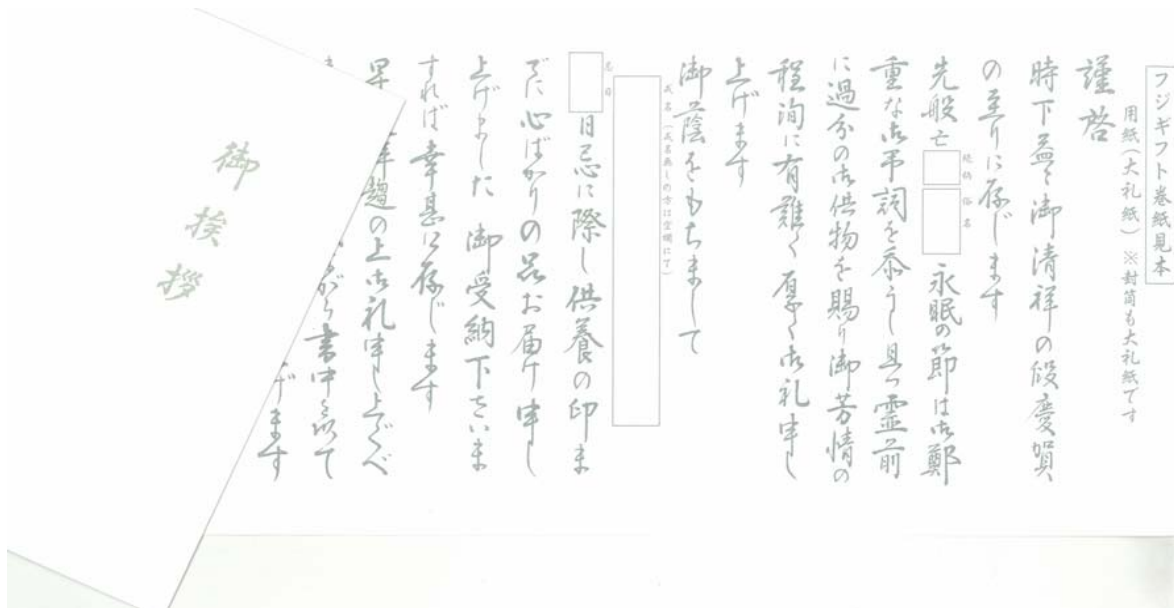 フジギフト巻紙見本
用紙(大礼紙) ※封筒も大礼紙です
謹啓
時下益々御清祥の段慶賀
の至りに存じます
先般亡
続柄
俗名
永眠の節は御鄭
重な御弔詞を忝うし且つ霊前
に過分の御供物を賜り御芳情の
程洵に有難く厚く御礼申し
上げます
御蔭をもちまして
戒名(戒名無しの方は空欄にて)
忌日
日忌に際し供養の印ま
でに心ばかりの品お届け申し
上げました 御受納下さいま
すれば幸甚に存じます
早
拝趨の上御礼申し上ぐべ
がら書中を以て
げます
御挨拶